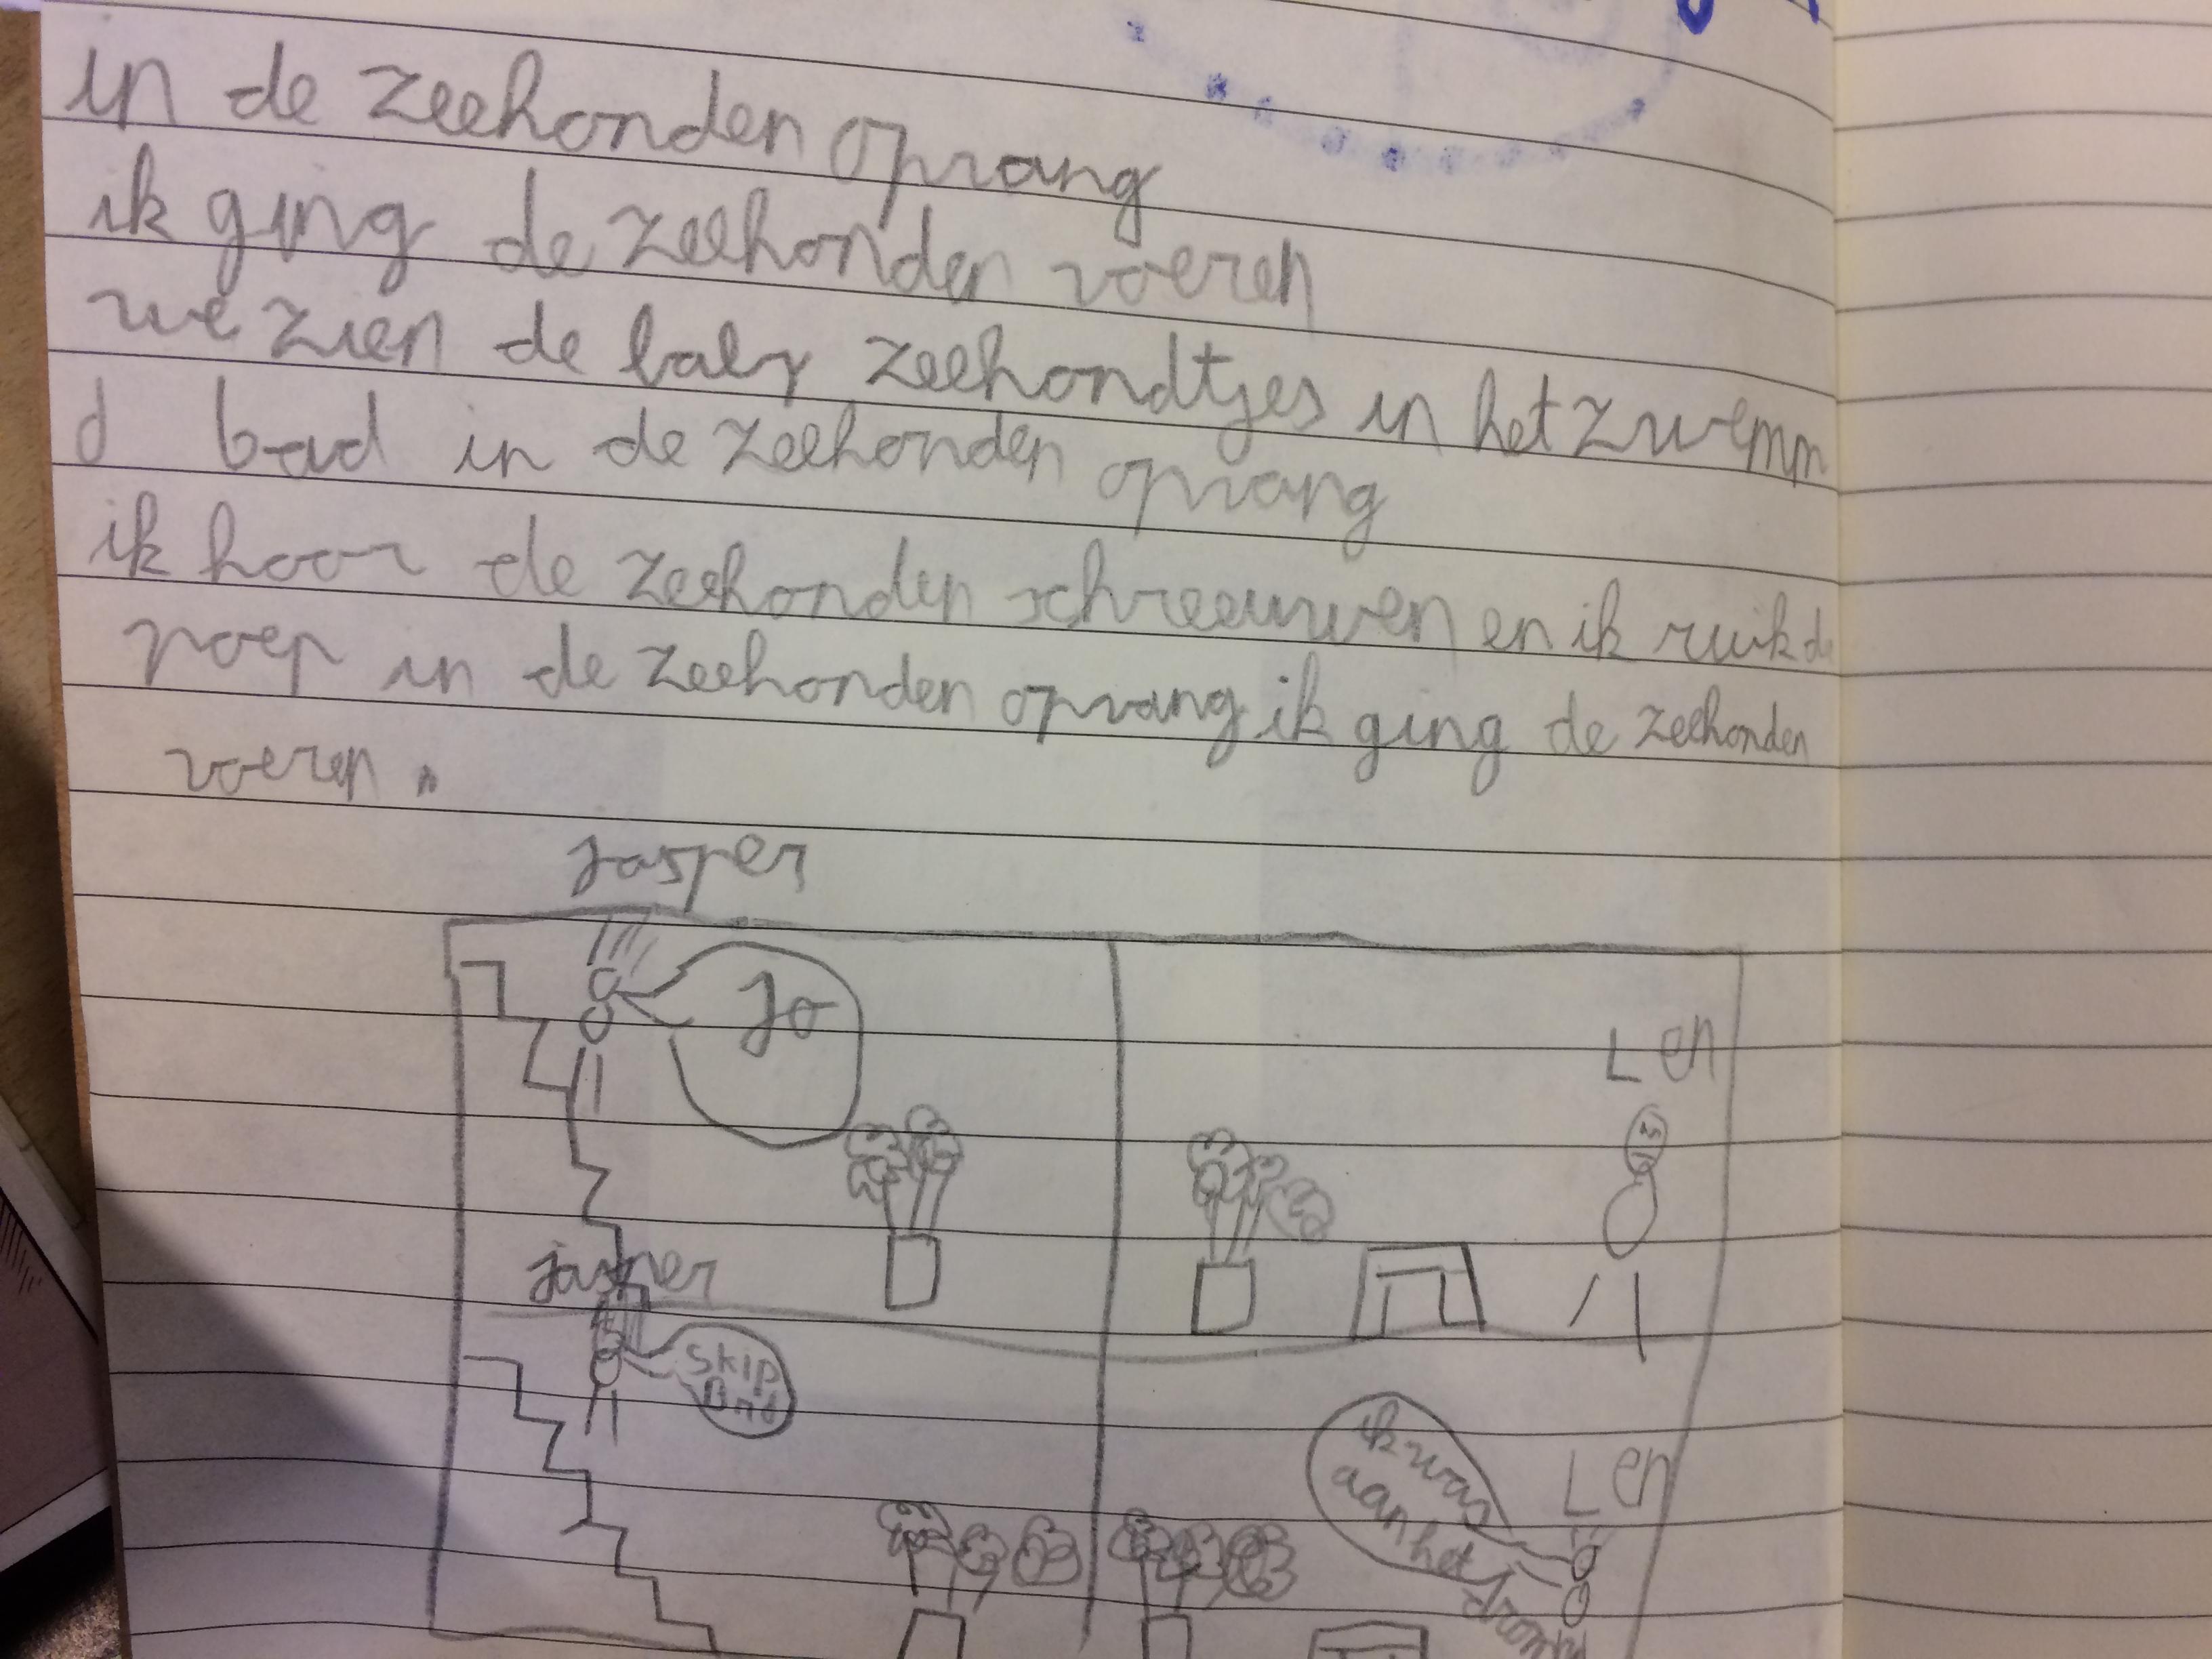 in de zeehonden opvang
ik ging de zeehonden voeren
we zien de baby zeehondtjes in het zwemm
d bad in de zeehonden opvang
ik hoor de zeehonden schreeuwen en ik ruik de
poep in de zeehonden opvang ik ging de zeehonden
voeren.
Jasper
Jo
Len
jasper
Skip
ik was
aan het
Len